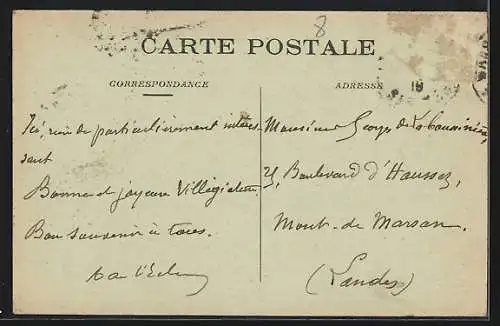 8
CARTE POSTALE
CORRESPONDANCE
ADRESSE
19
Ici, rien de particulièrement intéres-
sant
Bonne et joyeuse Villégiature.
Bon souvenir à tous.
Monsieur Georges de
25, Boulevard d'Haussez,
Mont-de-Marsan.
(Landes)